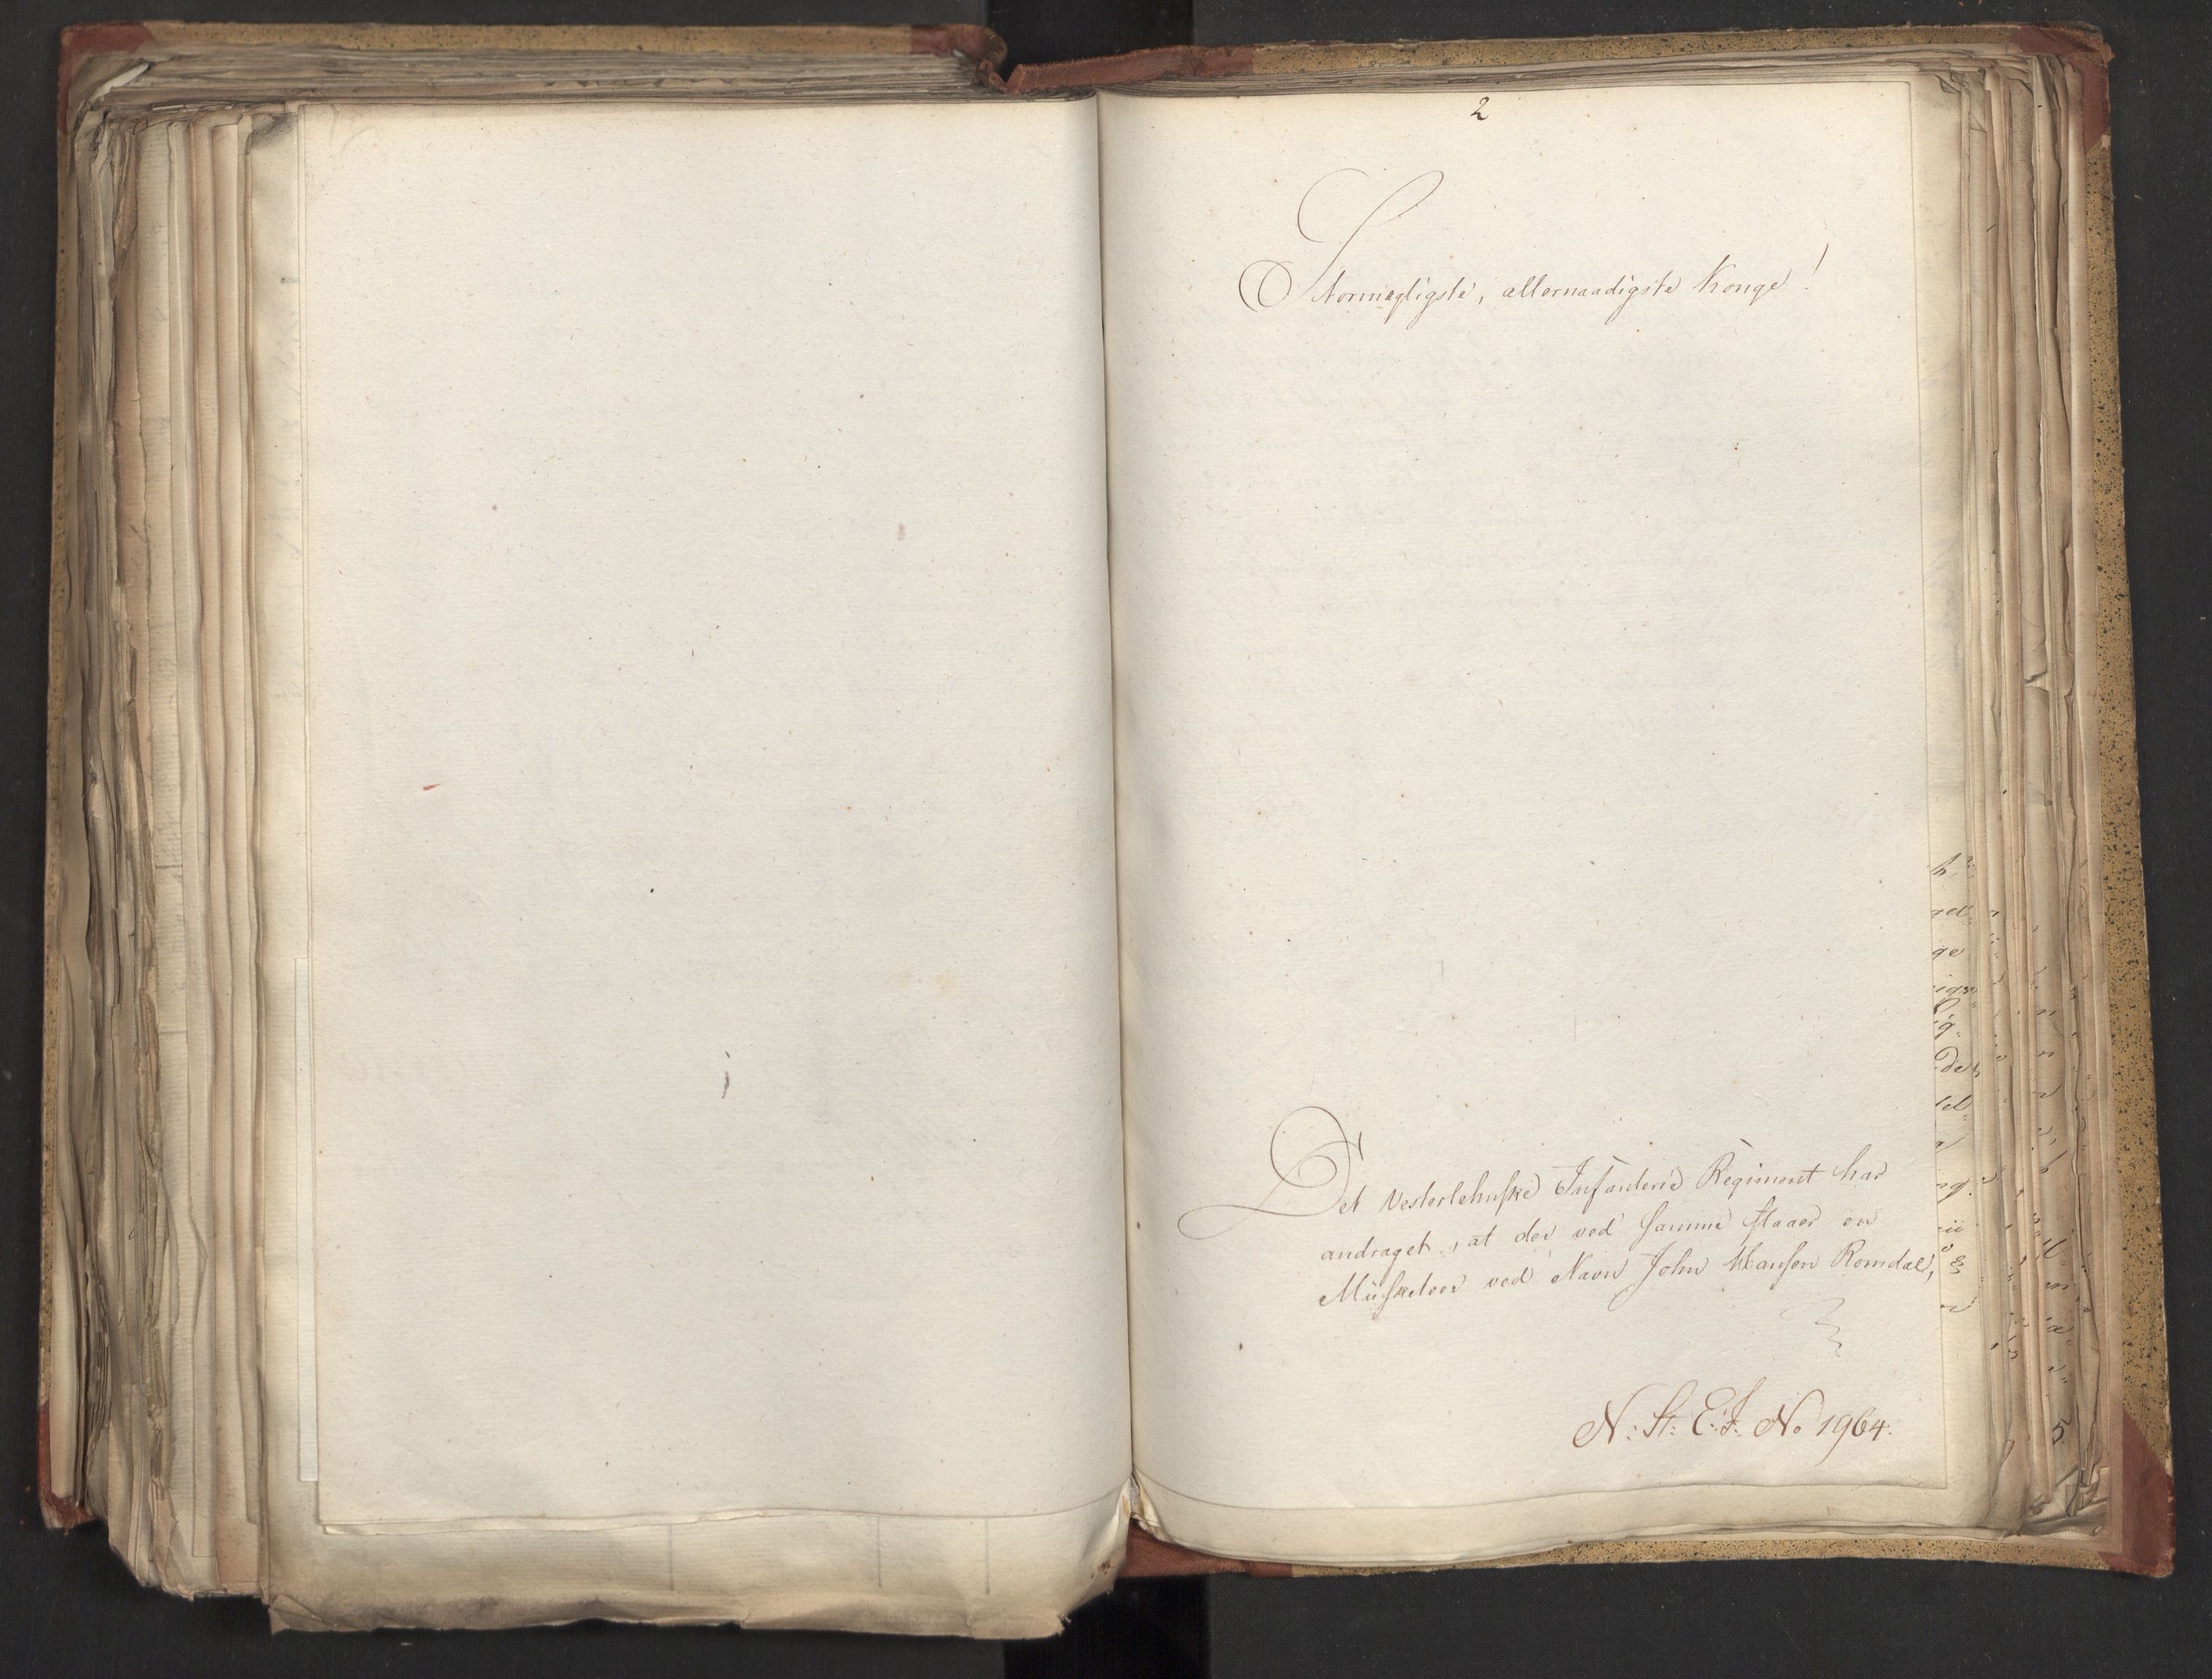 2
Stormægtigste, allernaadigste Konge!
Det Vesterlehnske Infanterie Regiment har
andraget, at der ved samme staaer en
Musketeer ved Navn John Hansen Romdal,
N: St: E: J: No 1964.